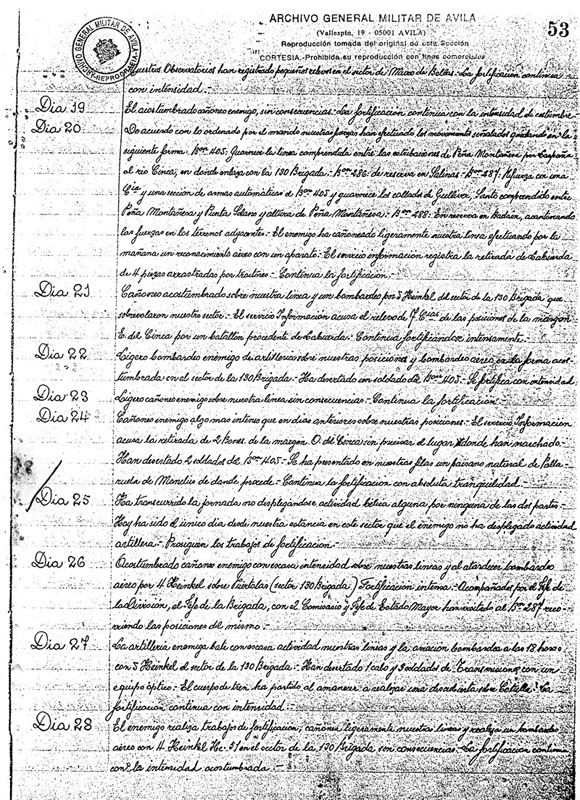 ARCHIVO GENERAL MILITAR DE AVILA
(Vallespín, 19 - 05001 AVILA)
Reproducción tomada del original de esta Sección
CORTESIA.-Prohibida su reproducción con fines comerciales
53
ARCHIVO GENERAL MILITAR DE AVILA
nuestros Observatorios han registrado pequeños relevos en el sector de . La fortificación continúa
con intensidad.
Dia 19 El acostumbrado cañoneo enemigo, sin consecuencias. La fortificación continúa con la intensidad de costumbre.
Dia 20 De acuerdo con lo ordenado por el mando nuestras fuerzas han efectuado los movimientos señalados quedando en la
siguiente forma: Bon 405: Guarnece la linea comprendida entre las estribaciones de Peña Montañesa por
al rio Cinca, en donde enlaza con la 130 Brigada. Bon 286: de reserva en Salinas. Bon 287: Refuerza con una
Cia y una sección de armas automáticas al Bon 405 y guarnece los collados de , Santo comprendido entre
Peña Montañesa y Punta y altura de Peña Montañesa. Bon 288: En reserva en Badain, acantonando
las fuerzas en los terrenos adyacentes. El enemigo ha cañoneado ligeramente nuestra linea efectuando por la
mañana un reconocimiento aéreo con un aparato. El servicio información registra la retirada de Labuerda
de 4 piezas arrastradas por tractores. Continúa la fortificación.
Dia 21 Cañoneo acostumbrado sobre nuestra linea y un bombardeo por 5 Heinkel del sector de la 130 Brigada que
sobrevolaron nuestro sector. El servicio Información acusa el relevo de Cias de las posiciones de la margen
E. del Cinca por un batallón procedente de Labuerda. Continúa fortificandose intensamente.
Dia 22 Ligero bombardeo enemigo de artilleria sobre nuestras posiciones y bombardeo aéreo en la forma acos-
tumbrada en el sector de la 130 Brigada. Ha desertado un soldado del Bon 405. Se fortifica con intensidad
Dia 23 Ligero cañoneo enemigo sobre nuestra linea sin consecuencias. Continúa la fortificación.
Dia 24 Cañoneo enemigo algo mas intenso que en dias anteriores sobre nuestras posiciones. El servicio Información
acusa la retirada de 2 Bones. de la margen O. del Cinca sin precisar el lugar a donde han marchado.
Han desertado 2 soldados del Bon 405. Se ha presentado en nuestras filas un paisano natural de
de de donde procede. Continúa la fortificación con absoluta tranquilidad.
Dia 25 Ha transcurrido la jornada no desplegandose actividad bélica alguna por ninguna de las dos partes.
Hoy ha sido el único dia desde nuestra estancia en este sector que el enemigo no ha desplegado actividad
artillera. Prosiguen los trabajos de fortificación.
Dia 26 Acostumbrado cañoneo enemigo con escasa intensidad sobre nuestras lineas y al atardecer bombardeo
aéreo por 4 Heinkel sobre Puértolas (sector 130 Brigada). Fortificación intensa. Acompañados por el Jefe de
la División, el Jefe de la Brigada, con el Comisario y Jefe de Estado Mayor han visitado al Bon 287 reco-
rriendo las posiciones del mismo.
Dia 27 La artilleria enemiga bate con escasa actividad nuestras lineas y la aviacion bombardea a las 18 horas
con 5 Heinkel el sector de la 130 Brigada. Han desertado 1 cabo y 3 soldados de Transmisiones con un
equipo óptico. El cuerpo de tren ha partido al amanecer a realizar una descubierta sobre . La
fortificación continúa con intensidad.
Dia 28 El enemigo realiza trabajos de fortificación, cañonea ligeramente nuestras lineas y realiza un bombardeo
aéreo con 4 Heinkel (He-51) en el sector de la 130 Brigada sin consecuencias. La fortificación continúa
con la intensidad acostumbrada.